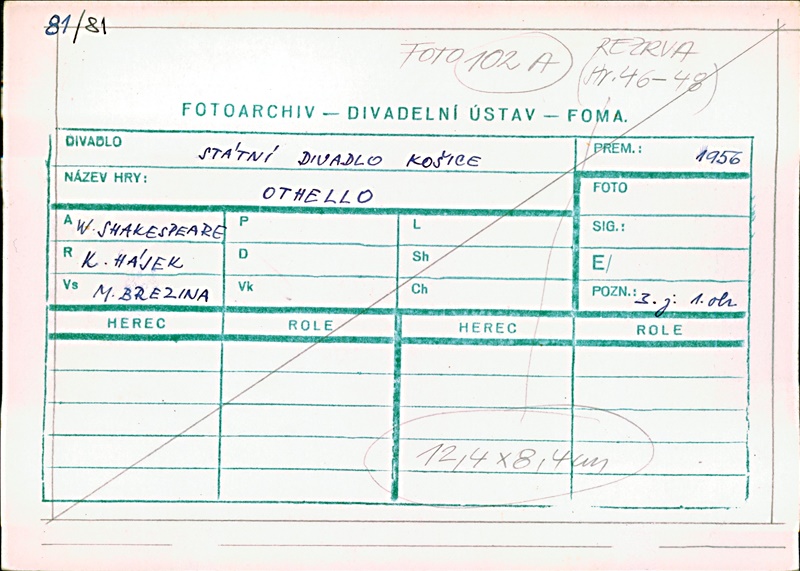 81/81
FOTO 102 A
REZRVA
str. 46-48
FOTOARCHIV — DIVADELNÍ ÚSTAV — FOMA.
DIVADLO STÁTNÍ DIVADLO KOŠICE
PREM.: 1956
NÁZEV HRY: OTHELLO
FOTO
A W. SHAKESPEARE P L
SIG.:
R K. HÁJEK D Sh
E/
Vs M. BŘEZINA Vk Ch
POZN.: 3. j. 1. obr
HEREC ROLE HEREC ROLE
12,4 x 8,4 cm